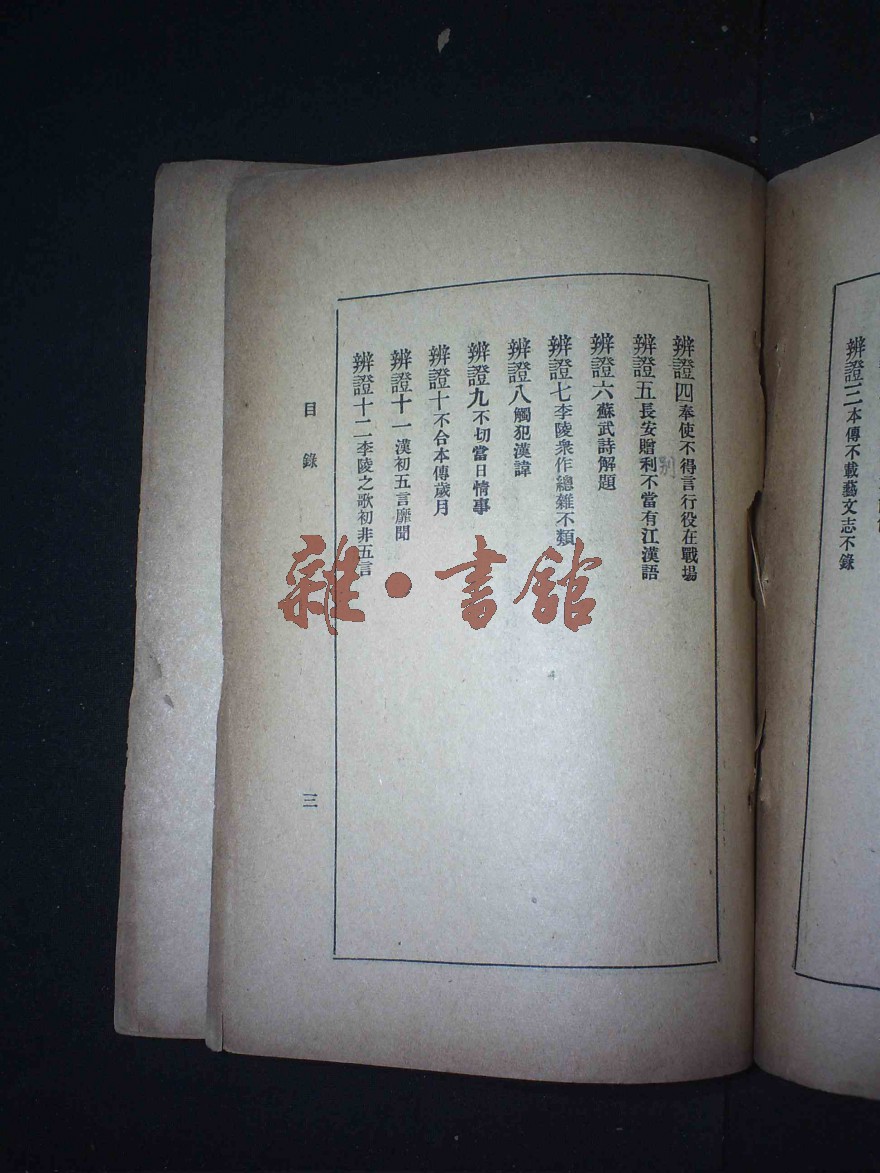 辨證三本傳不載藝文志不錄
辨證四奉使不得言行役在戰場
辨證五長安贈利不當有江漢語
別
辨證六蘇武詩解題
辨證七李陵衆作總雜不類
辨證八觸犯漢諱
辨證九不切當日情事
辨證十不合本傳歲月
辨證十一漢初五言靡聞
辨證十二李陵之歌初非五言
目錄
三
雜·書館